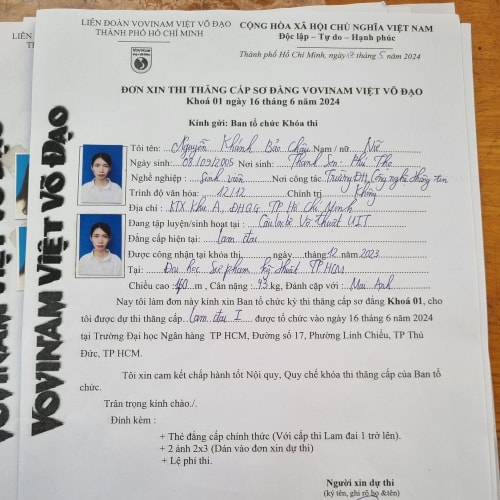 LIÊN ĐOÀN VOVINAM VIỆT VÕ ĐẠO
THÀNH PHỐ HỒ CHÍ MINH
CỘNG HÒA XÃ HỘI CHỦ NGHĨA VIỆT NAM
Độc lập – Tự do – Hạnh phúc
VOVINAM
Thành phố Hồ Chí Minh, ngày tháng 5 năm 2024
ĐƠN XIN THI THĂNG CẤP SƠ ĐẲNG VOVINAM VIỆT VÕ ĐẠO
Khoá 01 ngày 16 tháng 6 năm 2024
Kính gửi: Ban tổ chức Khóa thi
Tôi tên: Nguyễn Khánh Bảo Châu Nam / nữ: Nữ
Ngày sinh: 08/09/2005 Nơi sinh: Thanh Sơn - Phú Thọ
Nghề nghiệp: Sinh viên Nơi công tác: Trường ĐH Công nghệ thông tin
Trình độ văn hóa: 12/12 Chính trị: Không
Địa chỉ: KTX Khu A, ĐHQG TP Hồ Chí Minh
Đang tập luyện/sinh hoạt tại: Câu lạc bộ Võ thuật UIT
Đẳng cấp hiện tại: Lam đai
Được công nhận tại khóa thi, ngày tháng 12 năm 2023
Tại: Đại học Sư phạm kỹ thuật TP HCM
Chiều cao: m, Cân nặng: kg, Đánh cặp với: Mai Anh
Nay tôi làm đơn này kính xin Ban tổ chức kỳ thi thăng cấp sơ đẳng Khoá 01, cho
tôi được dự thi thăng cấp Lam đai I được tổ chức vào ngày 16 tháng 6 năm 2024
tại Trường Đại học Ngân hàng TP HCM, Đường số 17, Phường Linh Chiểu, TP Thủ
Đức, TP HCM.
Tôi xin cam kết chấp hành tốt Nội quy, Quy chế khóa thi thăng cấp của Ban tổ
chức.
Trân trọng kính chào./.
Đính kèm:
+ Thẻ đẳng cấp chính thức (Với cấp thi Lam đai 1 trở lên).
+ 2 ảnh 2x3 (Dán vào đơn xin dự thi)
+ Lệ phí thi.
Người xin dự thi
(ký tên, ghi rõ họ &tên)
VOVINAM VIỆT VÕ ĐẠO
VOVINAM VIỆT VÕ ĐẠO